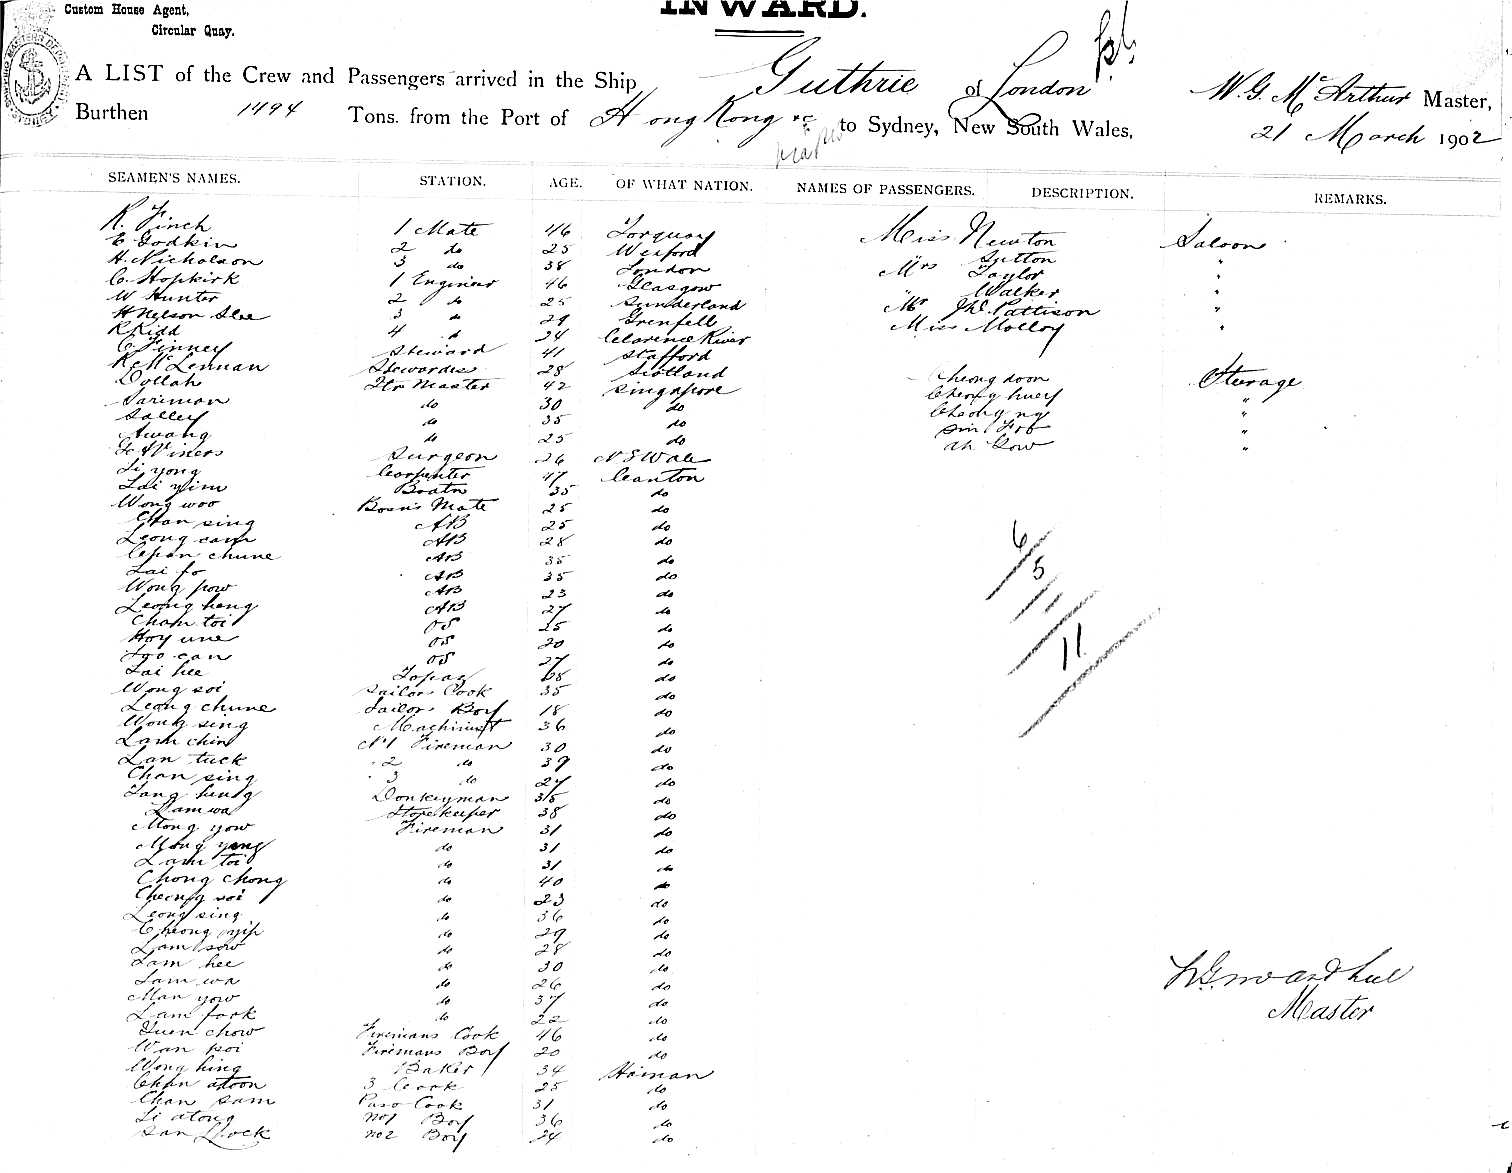 INWARD.
Custom House Agent,
Circular Quay.
A LIST of the Crew and Passengers arrived in the Ship Guthrie of London W. G. McArthur Master,
Burthen 1494 Tons. from the Port of Hong Kong &c to Sydney, New South Wales, 21 March 1902
SEAMEN'S NAMES. STATION. AGE. OF WHAT NATION. NAMES OF PASSENGERS. DESCRIPTION. REMARKS.
R. Finch 1 Mate 46 Torquay Miss Newton Saloon
E Godkin 2 do 25 Wexford Mrs Sutton "
H. Nicholson 3 do 38 London Taylor "
C. Hopkirk 1 Engineer 46 Glasgow " Walker "
W Hunter 2 do 25 Sunderland Mr Jno. Pattison "
H Nelson Slee 3 do 29 Grenfell Miss Molloy "
R Kidd 4 d 24 Clarence River
C Finney Steward 41 Stafford
R McLennan Stewardss 28 Scotland Cheong doon Steerage
Dollah Qtr Master 42 Singapore Cheong huey "
Sariman do 30 do Cheong ng "
Salley do 35 do Sin Fob "
Awang do 25 do Ah Gow "
Viners Surgeon 26 N S Wale
Li yong Carpenter 47 Canton
Lai yim Boatn 35 do
Wong woo Bosns Mate 25 do
Chan sing AB 25 do
Leong cam AB 28 do
Chan chune AB 35 do
Lai fo AB 35 do
Wong pow AB 23 do
Leong heng AB 27 do
Cham toi OS 25 do
Hoy une OS 20 do
can OS 27 do
Lai hee Topaz 28 do
Wong soi Sailors Cook 35 do
Leong chune Sailors Boy 18 do
Wong sing Machinist 36 do
Lam chin No 1 Fireman 30 do
Lan tuck 2 do 39 do
Chan sing 3 do 27 do
Tang hung Donkeyman 35 do
Lam wa Storekeeper 38 do
Mong yow Fireman 31 do
Mong yang do 31 do
Lam toi do 31 do
Chong chong do 40 do
Cheong soi do 23 do
Leong sing do 36 do
Cheong yip do 29 do
Lam sow do 28 do
Lam hee do 30 do
Lam wa do 26 do
Man yow do 37 do
Lam fook do 22 do
Yuen chow Firemans Cook 46 do
Wan poi Firemans Boy 20 do
Wong hing Baker 34 Hainan
Chan atoon 3 Cook 25 do
Chan sam Pass Cook 31 do
Li atong No 1 Boy 36 do
San Lock no 2 Boy 24 do
6
5
11
Master